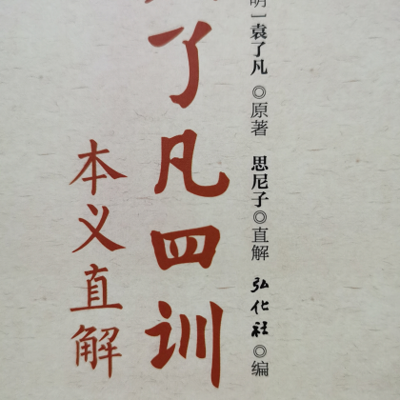 明一袁了凡◎原著 思尼子◎直解 弘化社◎编
了凡四训
本义直解